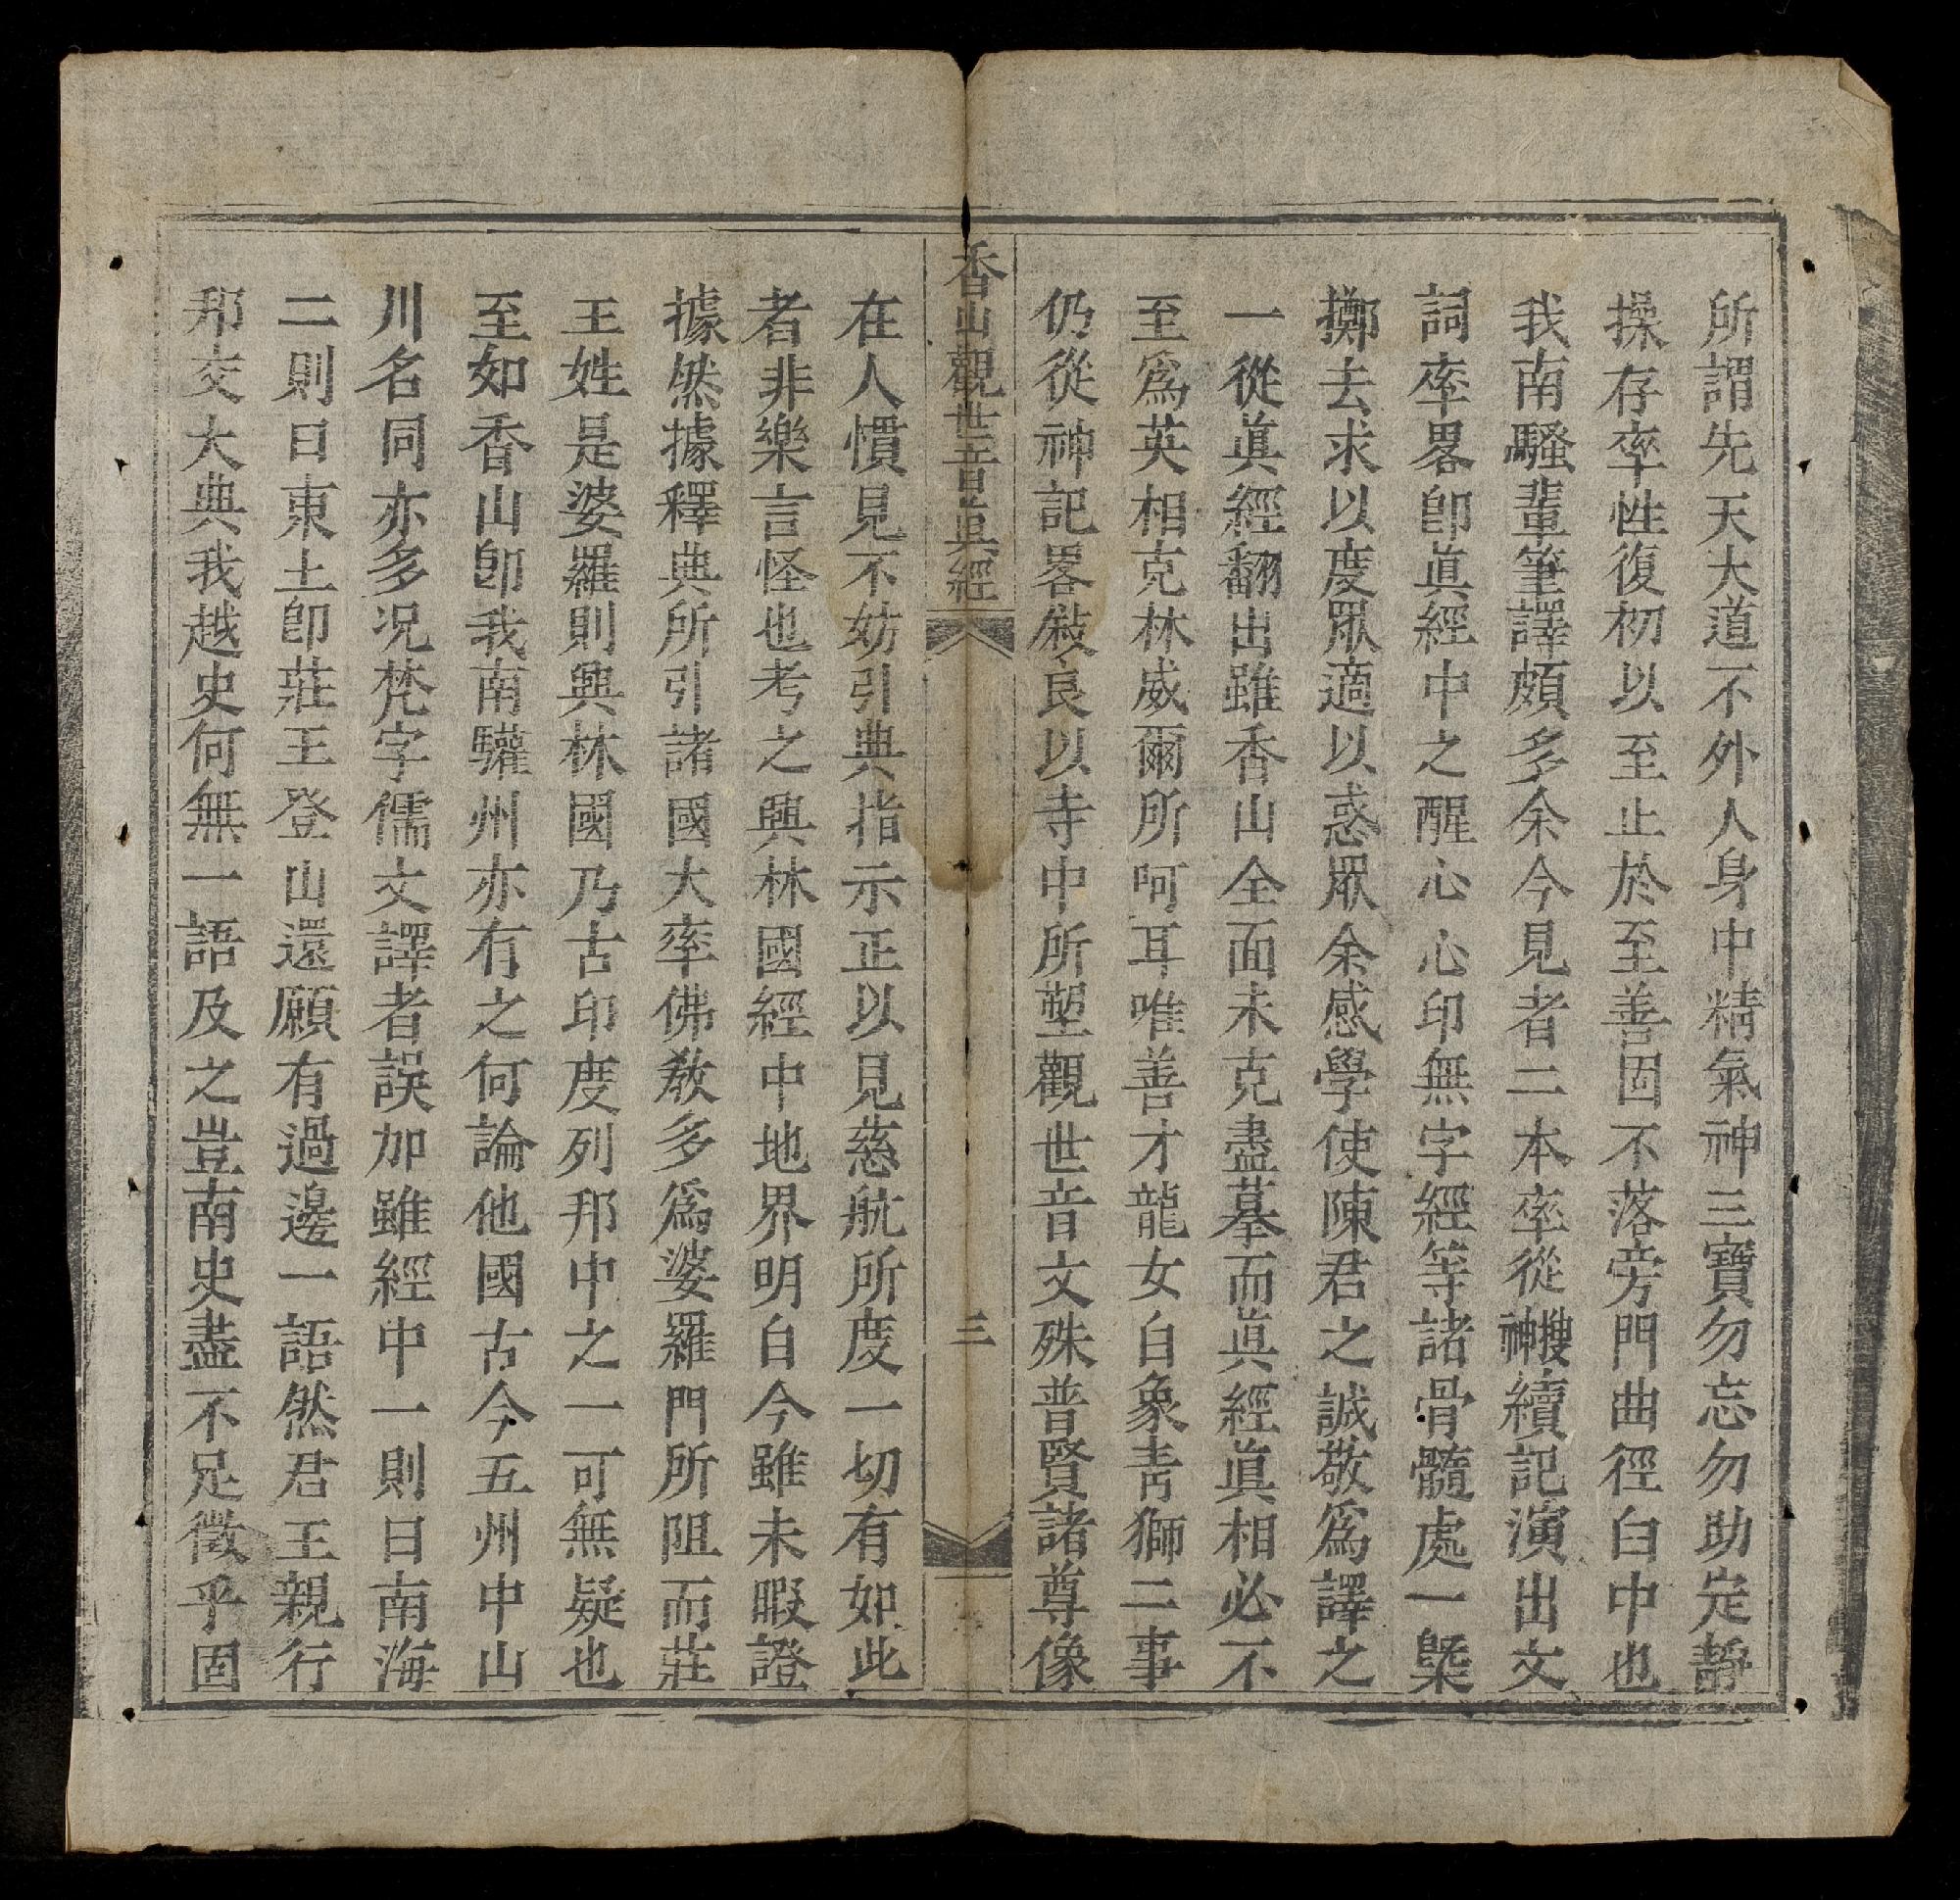 所謂先天大道不外人身中精氣神三寶勿忘勿助定靜
操存率性復初以至止於至善固不落旁門曲徑白中也
我南騷輩筆譯頗多余今見者二本率從搜神續記演出文
詞率畧卽眞經中之醒心心印無字經等諸骨髓處一槩
擲去求以度眾適以惑眾余感學使陳君之誠敬爲譯之
一從眞經翻出雖香山全面未克盡摹而眞經眞相必不
至爲英相克林威爾所呵耳唯善才龍女白象靑獅二事
仍從神記畧敍良以寺中所塑觀世音文殊普賢諸尊像
香山觀世音眞經
三
在人慣見不妨引典指示正以見慈航所度一切有如此
者非樂言怪也考之興林國經中地界明白今雖未暇證
據然據釋典所引諸國大率佛敎多爲婆羅門所阻而莊
王姓是婆羅則興林國乃古印度列邦中之一可無疑也
至如香山卽我南驩州亦有之何論他國古今五州中山
川名同亦多况梵字儒文譯者誤加雖經中一則曰南海
二則曰東土卽莊王登山還願有過邊一語然君王親行
邦交大典我越史何無一語及之豈南史盡不足徵乎固